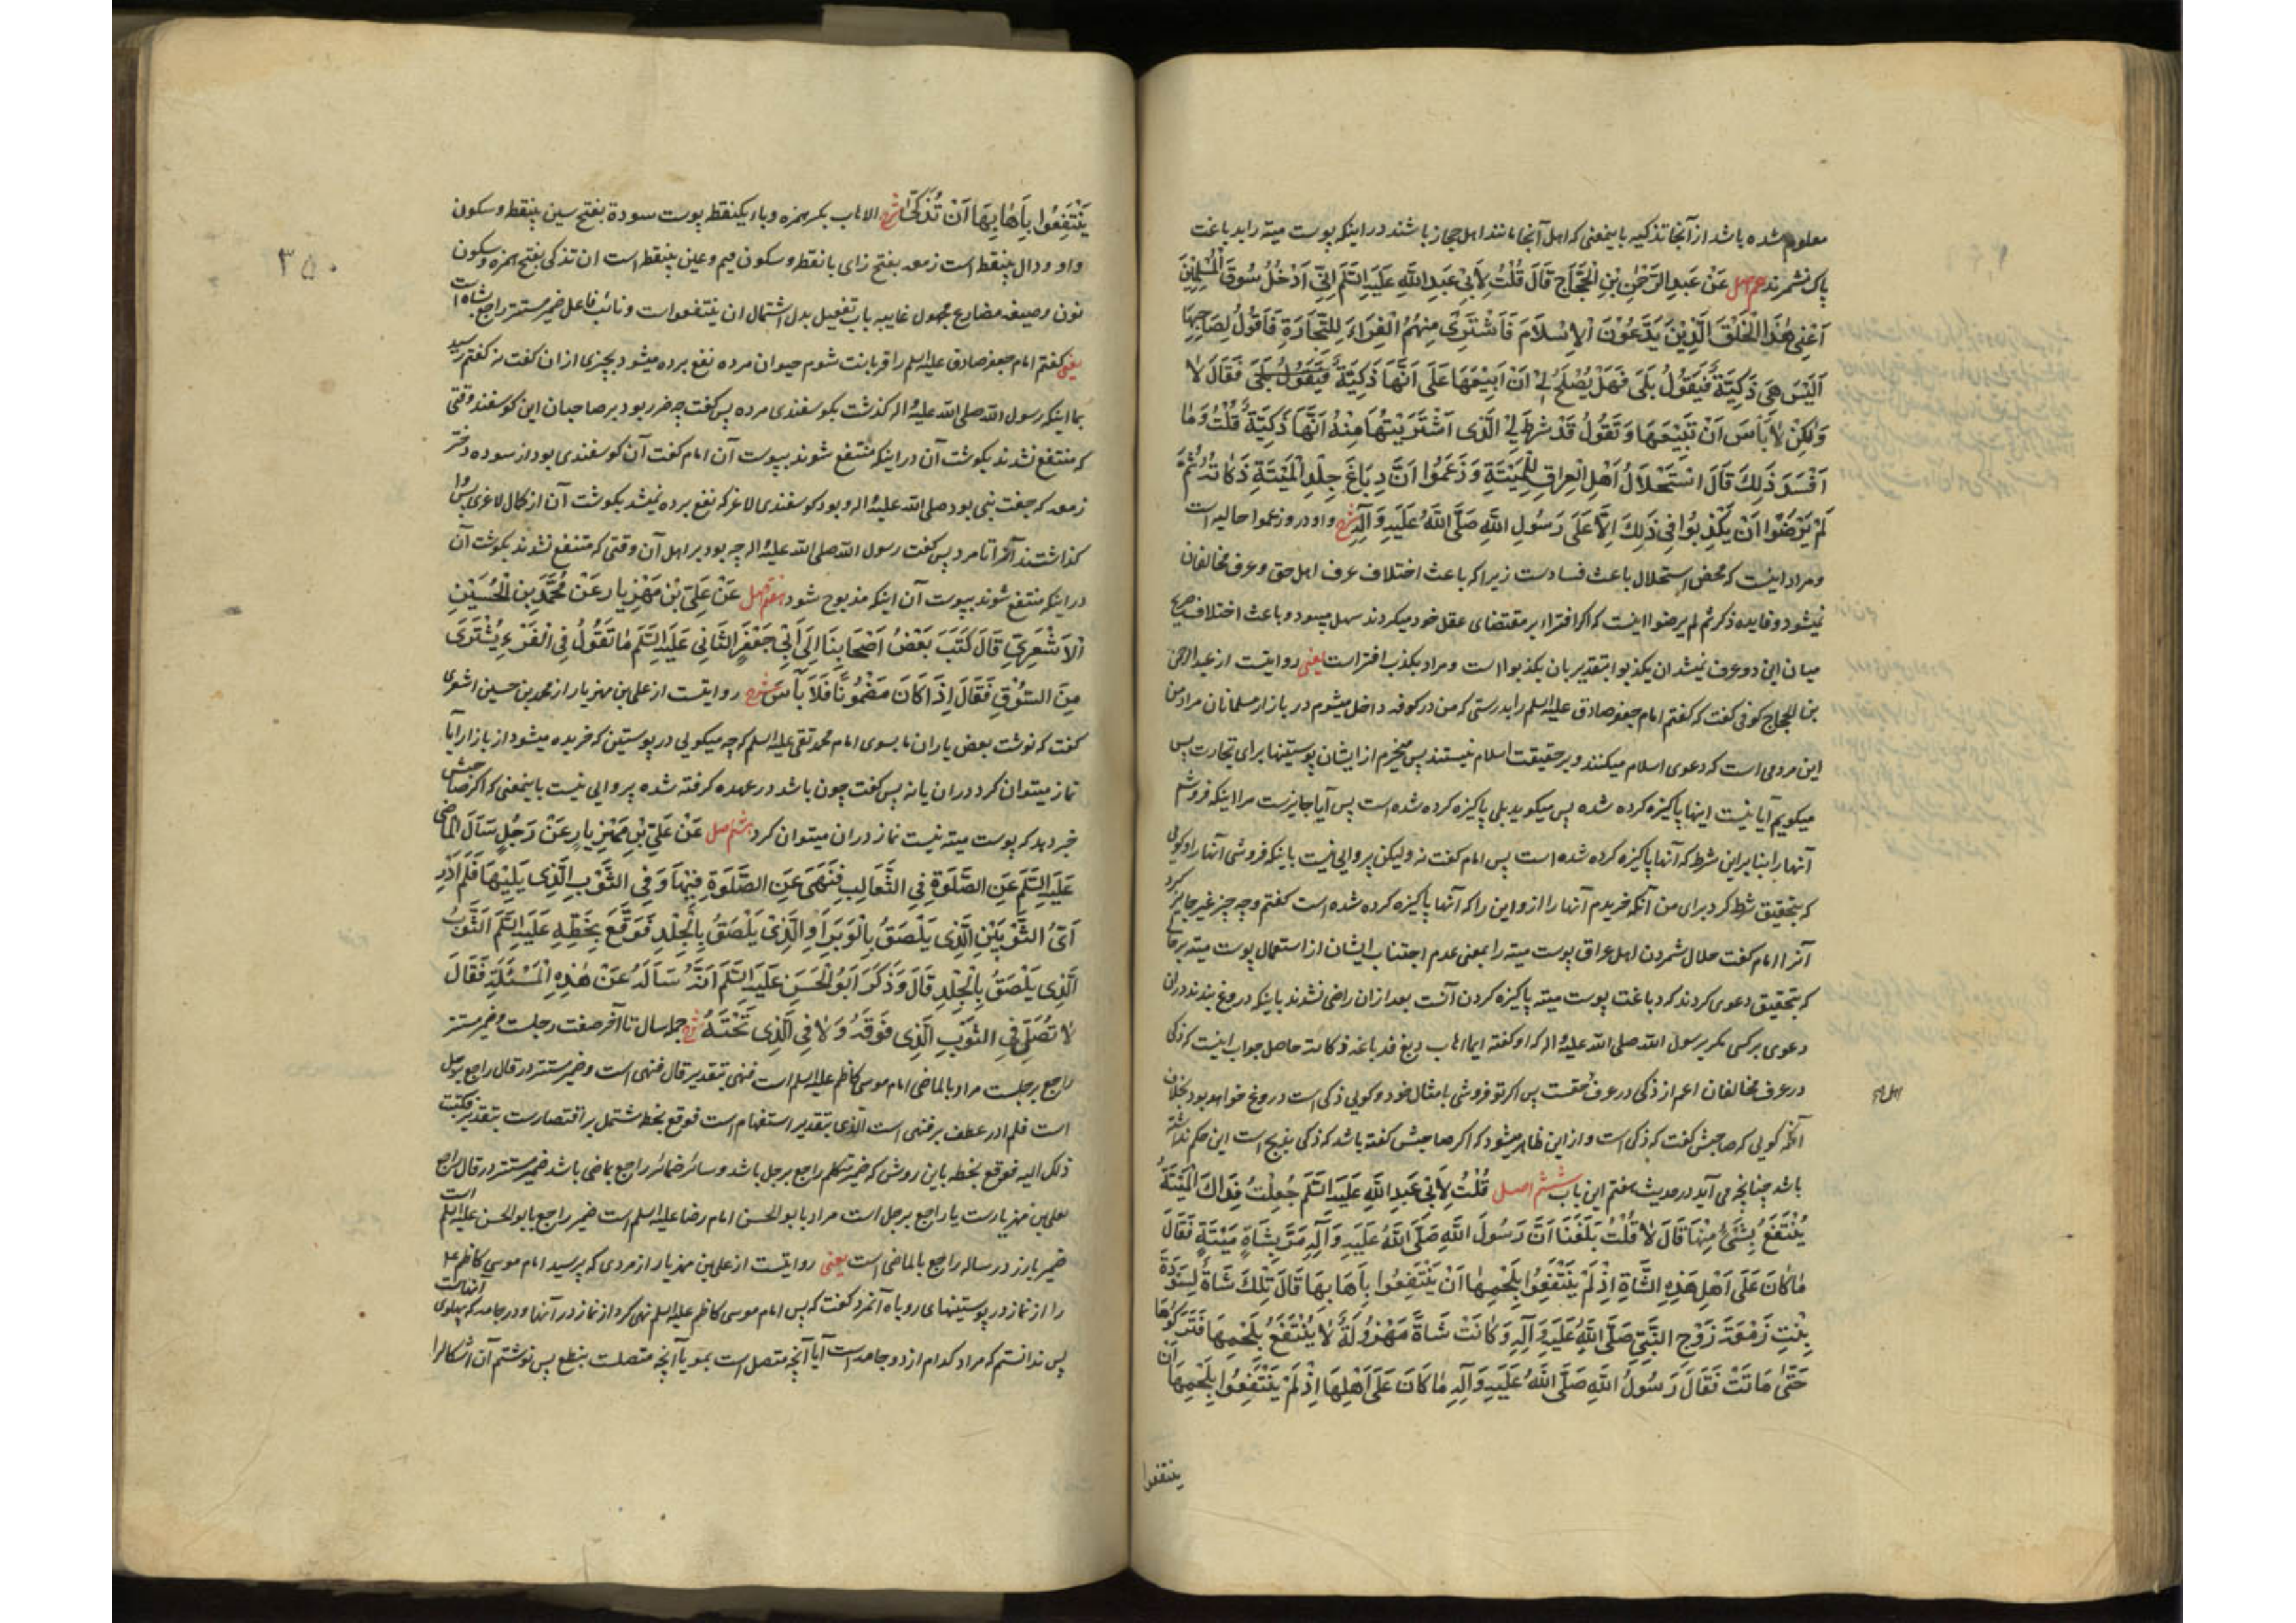 معلوم شده باشد از آنجا تذکیه باینمعنی که اهل آنجا مانند اهل حجاز باشند در اینکه پوست میته را بدباغت
پاک نشمرند پنجم اصل عَنْ عَبدِ الرَّحْمٰنِ بْنِ الْحَجَّاجِ قَالَ قُلْتُ لِأَبِیْ عَبدِ اللّهِ عَلَیهِ السَّلَم اِنِّی اَدْخُلُ سُوقَ الْمُسْلِمِیْنَ
اَعْنِیْ هٰذَا الْخَلْقَ الَّذِیْنَ یَدَّعُوْنَ الْاِسْلَامَ فَاَشْتَرِیْ مِنْهُمُ الْفِرَاءَ لِلتِّجَارَةِ فَاَقُوْلُ لِصَاحِبِهَا
اَلَیْسَ هِیَ ذَکِیَّةً فَیَقُوْلُ بَلَی فَهَلْ یَصْلُحُ لِیْ اَنْ اَبِیْعَهَا عَلَی اَنَّهَا ذَکِیَّةٌ فَیَقُوْلُ بَلَی فَقَالَ لَا
وَلٰکِنْ لَا بَأْسَ اَنْ تَبِیْعَهَا وَتَقُوْلَ قَدْ شَرَطَ لِیَ الَّذِی اشْتَرَیْتُهَا مِنْهُ اَنَّهَا ذَکِیَّةٌ قُلْتُ وَمَا
اَفْسَدَ ذَلِکَ قَالَ اسْتِحْلَالُ اَهْلِ الْعِرَاقِ لِلْمَیْتَةِ وَزَعَمُوا اَنَّ دِبَاغَ جِلْدِ الْمَیْتَةِ ذَکَاتُهُ ثُمَّ
لَمْ یَرْضَوْا اَنْ یَکْذِبُوا فِی ذَلِکَ اِلَّا عَلَی رَسُوْلِ اللّهِ صَلَّی اللّهُ عَلَیهِ وَآلِهِ شرح واو در وزعموا حالیه است
و مراد اینست که محض استحلال باعث فساد ست زیرا که باعث اختلاف عرف اهل حق و عرف مخالفان
نمیشود و فایده ذکر ثم لم یرضوا اینست که اکر افترا بر مقتضای عقل خود میکردند سهل میبود و باعث اختلاف صریح
میان این دو عرف نمیشد ان یکذبوا بتقدیر بان یکذبوا است و مراد بکذب افتراست یعنی روایتست از عبد الرحمن
بن الحجاج کوفی گفت که کفتم امام جعفر صادق علیه السلم را بدرستی که من در کوفه داخل میشوم در بازار مسلمانان مراد من
این مردمی است که دعوی اسلام میکنند و بر حقیقت اسلام نیستند پس میخرم از ایشان پوستینها برای تجارت پس
میکویم آیا نیست اینها پاکیزه کرده شده پس میکوید بلی پاکیزه کرده شده است پس آیا جایزست مرا اینکه فروشم
آنها را بنا بر این شرط که آنها پاکیزه کرده شده است پس امام کفت نه ولیکن پروایی نیست باینکه فروشی آنها را و کویی
که بتحقیق شرط کرد برای من آنکه خریدم آنها را ازو این را که آنها پاکیزه کرده شده است کفتم وچه چیز غیر جایز کرد
آنرا امام کفت حلال شمردن اهل عراق پوست میته را بمعنی عدم اجتناب ایشان از استعمال پوست میته بر جایی
که بتحقیق دعوی کردند که دباغت پوست میته پاکیزه کردن آنست بعد ازان راضی نشدند باینکه دروغ بندند دران
دعوی بر کسی مکر بر رسول الله صلی الله علیه و اله که او کفته ایما اهاب دبغ فدباغه ذکاته حاصل جواب اینست که ذکی
در عرف مخالفان اعم از ذکی در عرف حقست پس اکر تو فروشی بامثال خود و کویی ذکی است دروغ خواهد بود بخلاف
آنکه کویی که صاحبش کفت که ذکی است و از این ظاهر میشود که اکر صاحبش کفته باشد که ذکی بذبح است این حکم نداشته
باشد چنانچه می آید در حدیث هفتم این باب ششم اصل قُلْتُ لِأَبِی عَبدِ اللّهِ عَلَیهِ السَّلَم جُعِلْتُ فِدَاکَ الْمَیْتَةُ
یُنْتَفَعُ بِشَیْءٍ مِنْهَا قَالَ لَا قُلْتُ بَلَغَنَا اَنَّ رَسُوْلَ اللّهِ صَلَّی اللّهُ عَلَیهِ وَآلِهِ مَرَّ بِشَاةٍ مَیْتَةٍ فَقَالَ
مَا کَانَ عَلَی اَهْلِ هَذِهِ الشَّاةِ اِذْ لَمْ یَنْتَفِعُوا بِلَحْمِهَا اَنْ یَنْتَفِعُوا بِاَهَابِهَا قَالَ تِلْکَ شَاةٌ لِسَوْدَةَ
بِنْتِ زَمْعَةَ زَوْجِ النَّبِیِّ صَلَّی اللّهُ عَلَیهِ وَآلِهِ وَکَانَتْ شَاةً مَهْزُوْلَةً لَا یُنْتَفَعُ بِلَحْمِهَا فَتَرَکُوْهَا
حَتّٰی مَاتَتْ فَقَالَ رَسُوْلُ اللّهِ صَلَّی اللّهُ عَلَیهِ وَآلِهِ مَا کَانَ عَلَی اَهْلِهَا اِذْ لَمْ یَنْتَفِعُوا بِلَحْمِهَا اَنْ
ینتفعوا
یَنْتَفِعُوا بِاَهَابِهَا اَنْ تُذَکَّی شرح الاهاب بکسر همزه وباء یکنقطه پوست سودة بفتح سین بینقطه و سکون
واو و دال بینقطه است زمعه بفتح زای بانقطه و سکون میم و عین بینقطه است ان تذکی بفتح همزه و سکون
نون و صیغه مضارع مجهول غایبه باب تفعیل بدل اشتمال ان ینتفعوا است و نائب فاعل ضمیر مستتر راجع بشاه است
یعنی کفتم امام جعفر صادق علیه السلم را قربانت شوم حیوان مرده نفع برده میشود بچیزی از ان کفت نه کفتم رسید
بما اینکه رسول الله صلی الله علیه و اله کذشت بکوسفندی مرده پس کفت چه ضرر بود بر صاحبان این کوسفند وقتی
که منتفع نشدند بکوشت آن در اینکه منتفع شوند بپوست آن امام کفت آن کوسفندی بود از سوده دختر
زمعه که جفت نبی بود صلی الله علیه و اله و بود کوسفندی لاغر که نفع برده نمیشد بکوشت آن از کمال لاغری پس وا
کذاشتند آنرا تا مرد پس کفت رسول الله صلی الله علیه و اله چه بود بر اهل آن وقتی که منتفع نشدند بکوشت آن
در اینکه منتفع شوند بپوست آن اینکه مذبوح شود هفتم اصل عَنْ عَلِیِّ بْنِ مَهْزِیَارَ عَنْ مُحَمَّدِ بْنِ الْحُسَیْنِ
الْاَشْعَرِیِّ قَالَ کَتَبَ بَعْضُ اَصْحَابِنَا اِلَی اَبِیْ جَعْفَرٍ الثَّانِی عَلَیهِ السَّلَم مَا تَقُوْلُ فِی الْفَرْوِ یُشْتَرَی
مِنَ السُّوْقِ فَقَالَ اِذَا کَانَ مَضْمُوْنًا فَلَا بَأْسَ شرح روایتست از علی بن مهزیار از محمد بن حسین اشعری
کفت که نوشت بعض یاران ما بسوی امام محمد تقی علیه السلم که چه میکویی در پوستین که خریده میشود از بازار آیا
نماز میتوان کرد دران یا نه پس کفت چون باشد در عهده کرفته شده پروایی نیست باینمعنی که اکر صاحبش
خبر دهد که پوست میته نیست نماز دران میتوان کرد هشتم اصل عَنْ عَلِیِّ بْنِ مَهْزِیَارَ عَنْ رَجُلٍ سَاَلَ الْمَاضِی
عَلَیهِ السَّلَم عَنِ الصَّلٰوةِ فِی الثَّعَالِبِ فَنَهَی عَنِ الصَّلٰوةِ فِیْهَا وَفِی الثَّوْبِ الَّذِی یَلِیْهَا فَلَمْ اَدْرِ
اَیُّ الثَّوْبَیْنِ الَّذِی یَلْصَقُ بِالْوَبَرِ اَوِ الَّذِیْ یَلْصَقُ بِالْجِلْدِ فَوَقَّعَ بِخَطِّهِ عَلَیهِ السَّلَم الثَّوْبُ
الَّذِی یَلْصَقُ بِالْجِلْدِ قَالَ وَذَکَرَ اَبُو الْحَسَنِ عَلَیهِ السَّلَم اَنَّهُ سَاَلَهُ عَنْ هٰذِهِ الْمَسْئَلَةِ فَقَالَ
لَا تُصَلِّ فِی الثَّوْبِ الَّذِی فَوْقَهُ وَلَا فِی الَّذِی تَحْتَهُ شرح جمله سال تا آخر صفت رجلست و ضمیر مستتر
راجع برجلست مراد بالماضی امام موسی کاظم علیه السلم است فنهی بتقدیر قال فنهی است و ضمیر مستتر در قال راجع برجل
است فلم ادر عطف بر فنهی است الذی بتقدیر استفهام است فوقع بخطه مشتمل بر اقتصارست بتقدیر فکتبت
ذلک الیه فوقع بخطه باین روش که ضمیر متکلم راجع برجل باشد و سائر ضمائر راجع بماضی باشد ضمیر مستتر در قال راجع
بعلی بن مهزیارست یا راجع برجل است مراد بابو الحسن امام رضا علیه السلم است ضمیر راجع بابو الحسن علیه السلم است
ضمیر بارز در ساله راجع بالماضی است یعنی روایتست از علی بن مهزیار از مردی که پرسید امام موسی کاظم ع
را از نماز در پوستینهای روباه آنمرد کفت که پس امام موسی کاظم علیه السلم نهی کرد از نماز در آنها و در جامه که پهلوی آنهاست
پس ندانستم که مراد کدام از دو جامه است آیا آنچه متصل است بمو یا آنچه متصلست بنطع پس نوشتم آن اشکال را
۳۵۰